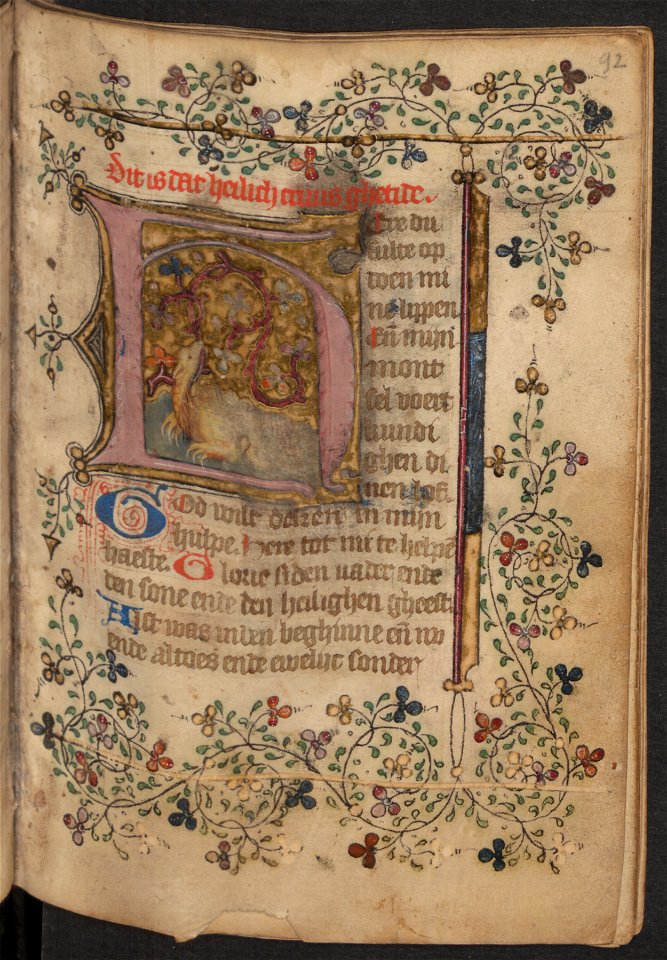 92
Dit is dat heilich cruus ghetide.
Here du
sulte op
toen mi
ne lippen
Eñ mijn
mont
sel voert
kundi
ghen di
nen lof.
God wilt in mijn
hulpe. Here tot mi te helpe
haeste. Glorie si den vader ende
den sone ende den heilighen gheest.
Alst was inden beghinne eñ nv
ende altoes ende ewelijc sonder